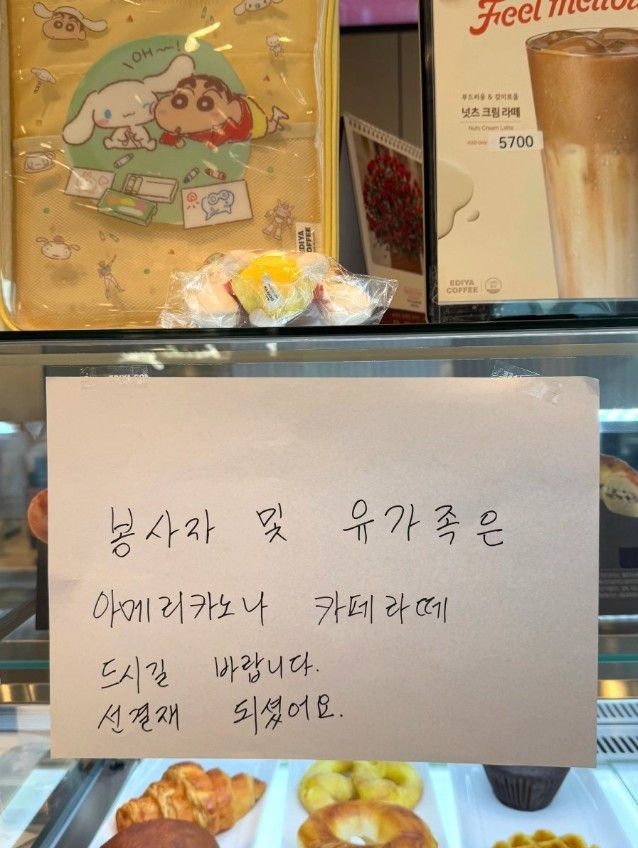 OH~!
EDIYA COFFEE
Feel mellow
부드러움 & 감미로움
넛츠 크림 라떼
Nuts Cream Latte
5700
EDIYA
COFFEE
봉사자 및 유가족은
아메리카노나 카페라떼
드시길 바랍니다.
선결재 되셨어요.